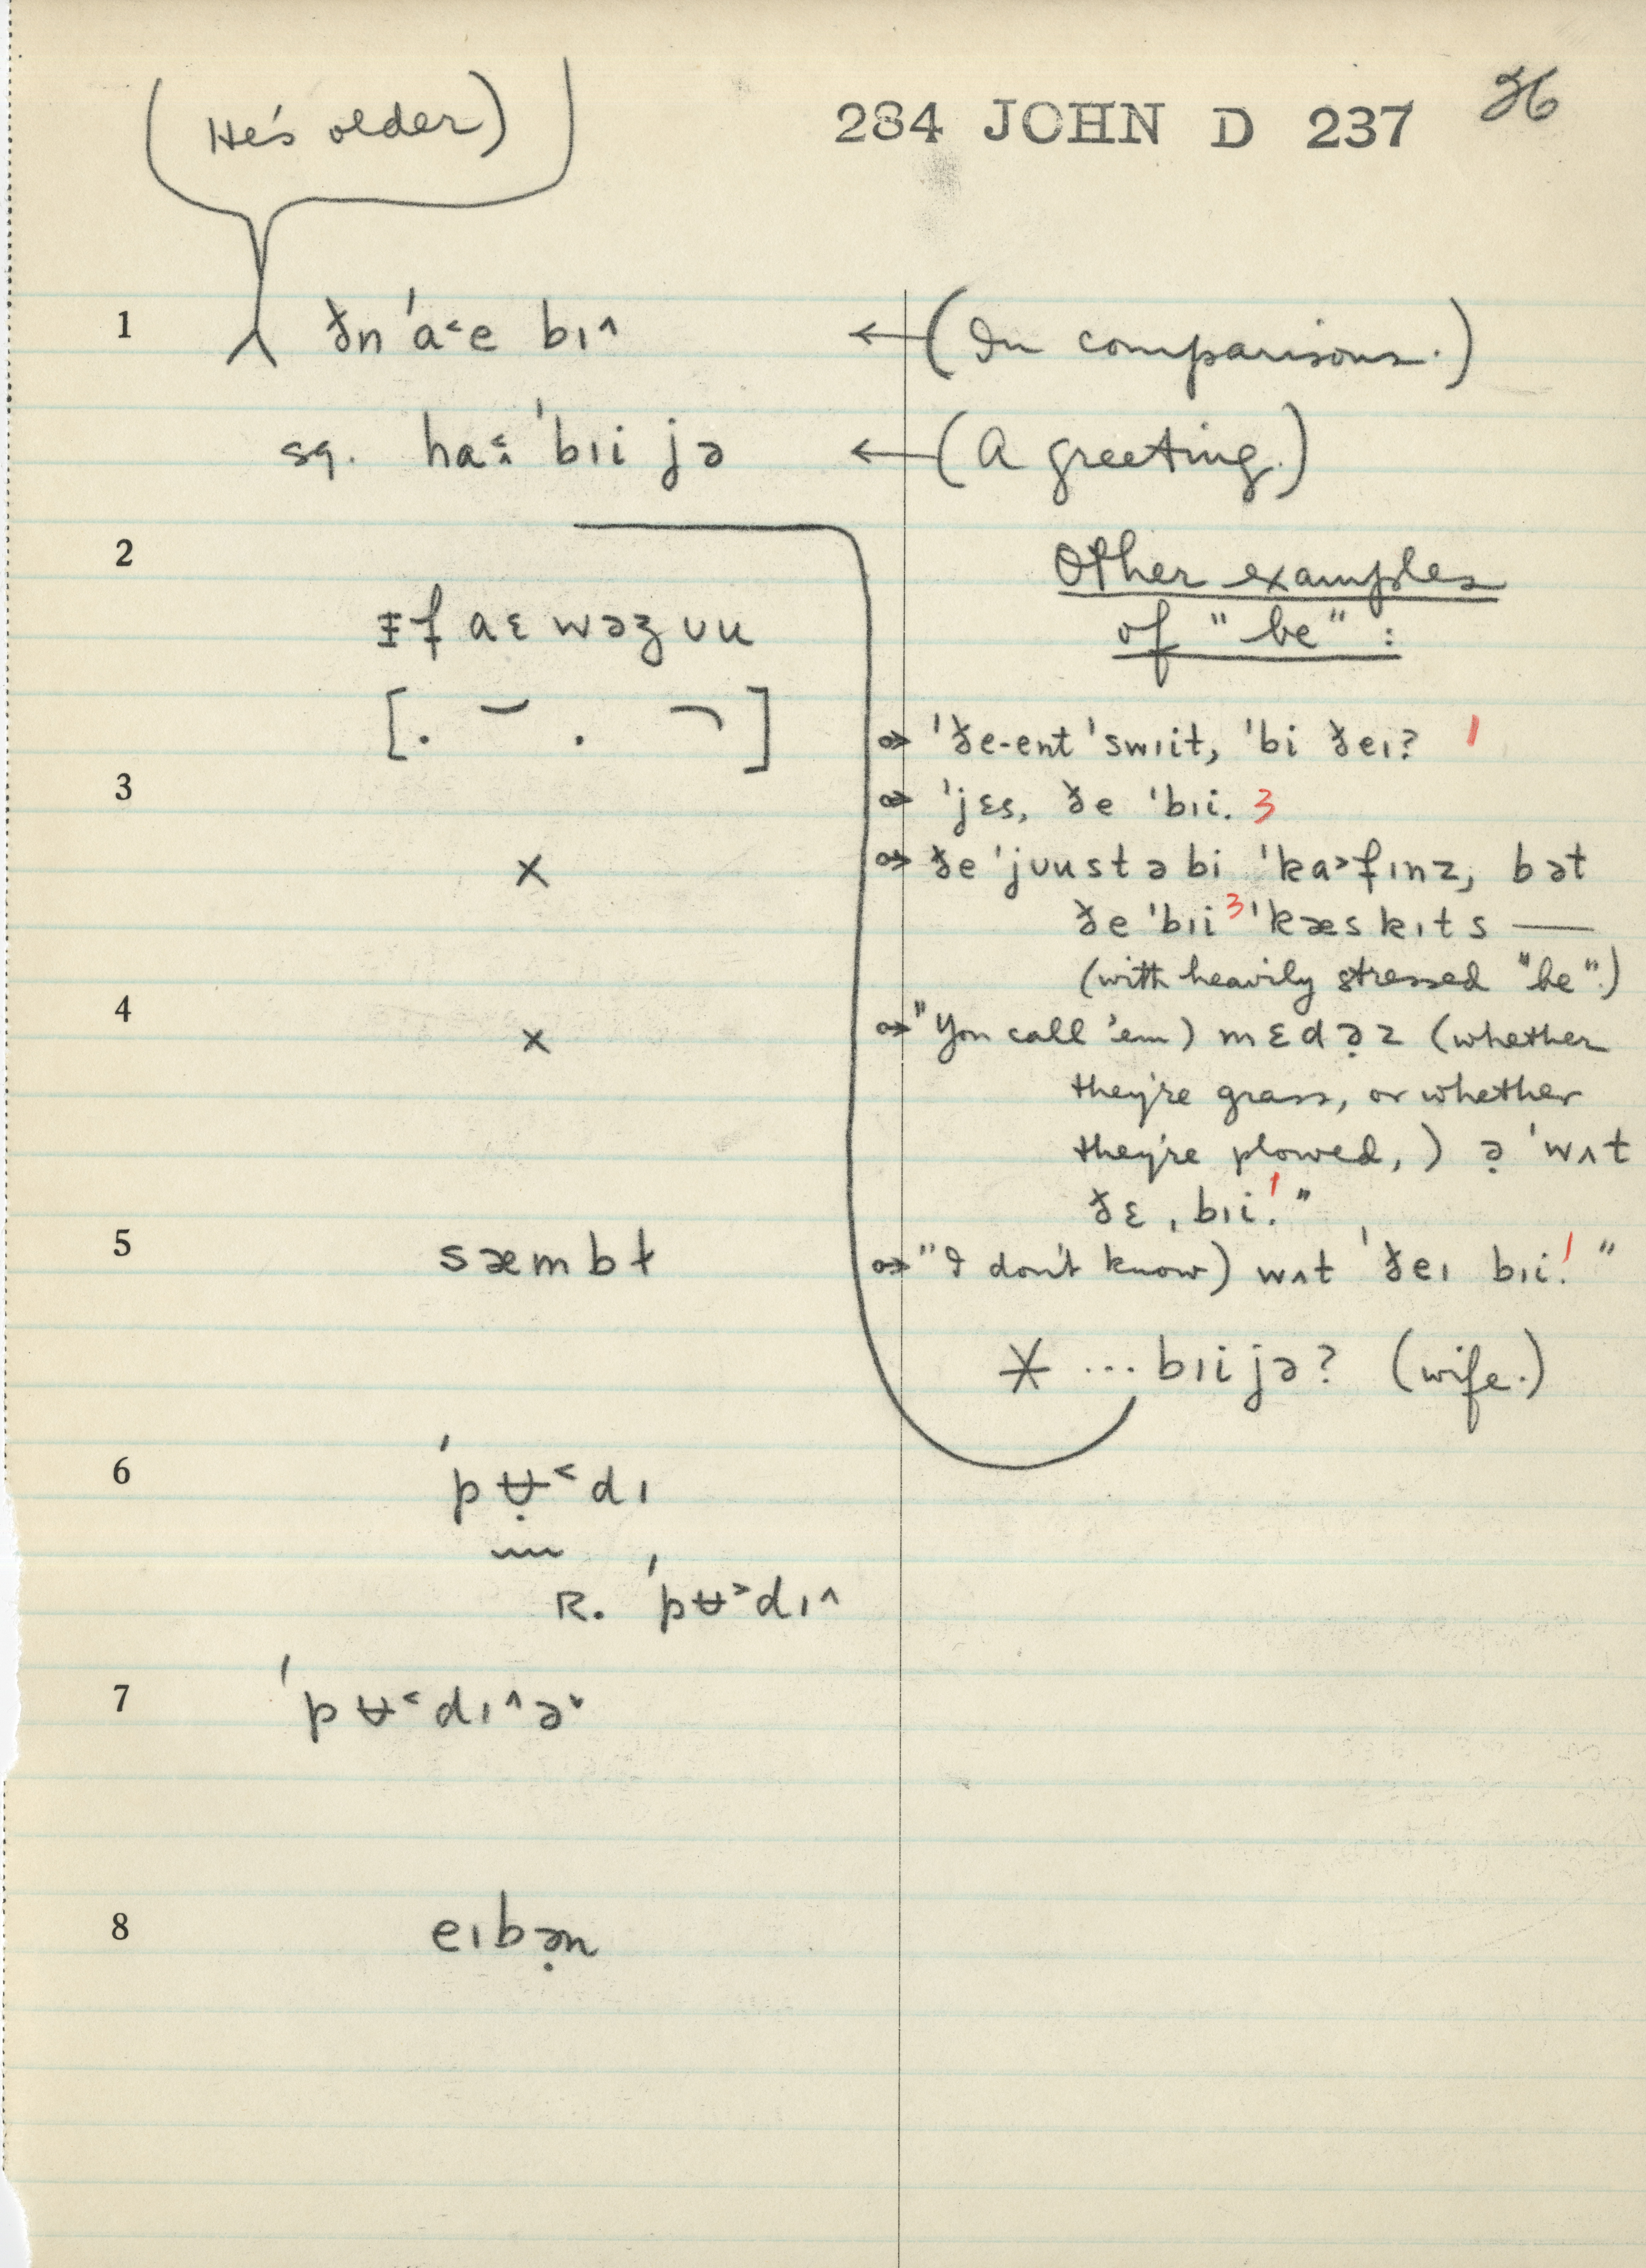 (He's older)
284 JOHN D 237 36
1 ðn ˈa˂e bɪ^ ←(In comparisons.)
sq. ha ˈbɪi jə ←(A greeting.)
2 Other examples
ɪf aɛ wəʒ ʊu of "be":
[. ˘ . ¬]
ˈðe-ent ˈswɪit, ˈbi ðeɪ? 1
3 ˈjɛs, ðe ˈbɪi. 3
x ðe ˈjʊustə bi ˈka˃fɪnz, bət
ðe ˈbɪi 3 ˈkæskɪts —
(with heavily stressed "be".)
4 x "You call 'em) mɛdə̣z (whether
they're grass, or whether
they're plowed,) ə̣ ˈwʌt
ðɛ ˌbɪi! "
5 sæmbɫ "I don't know) wʌt ˈðeɪ bɪi! "
* ... bɪi jə? (wife.)
6 ˈpʉ̣˂dɪ
R. ˈpʉ˃dɪ^
7 ˈpʉ˂dɪ^ə˅
8 eɪbə̣n